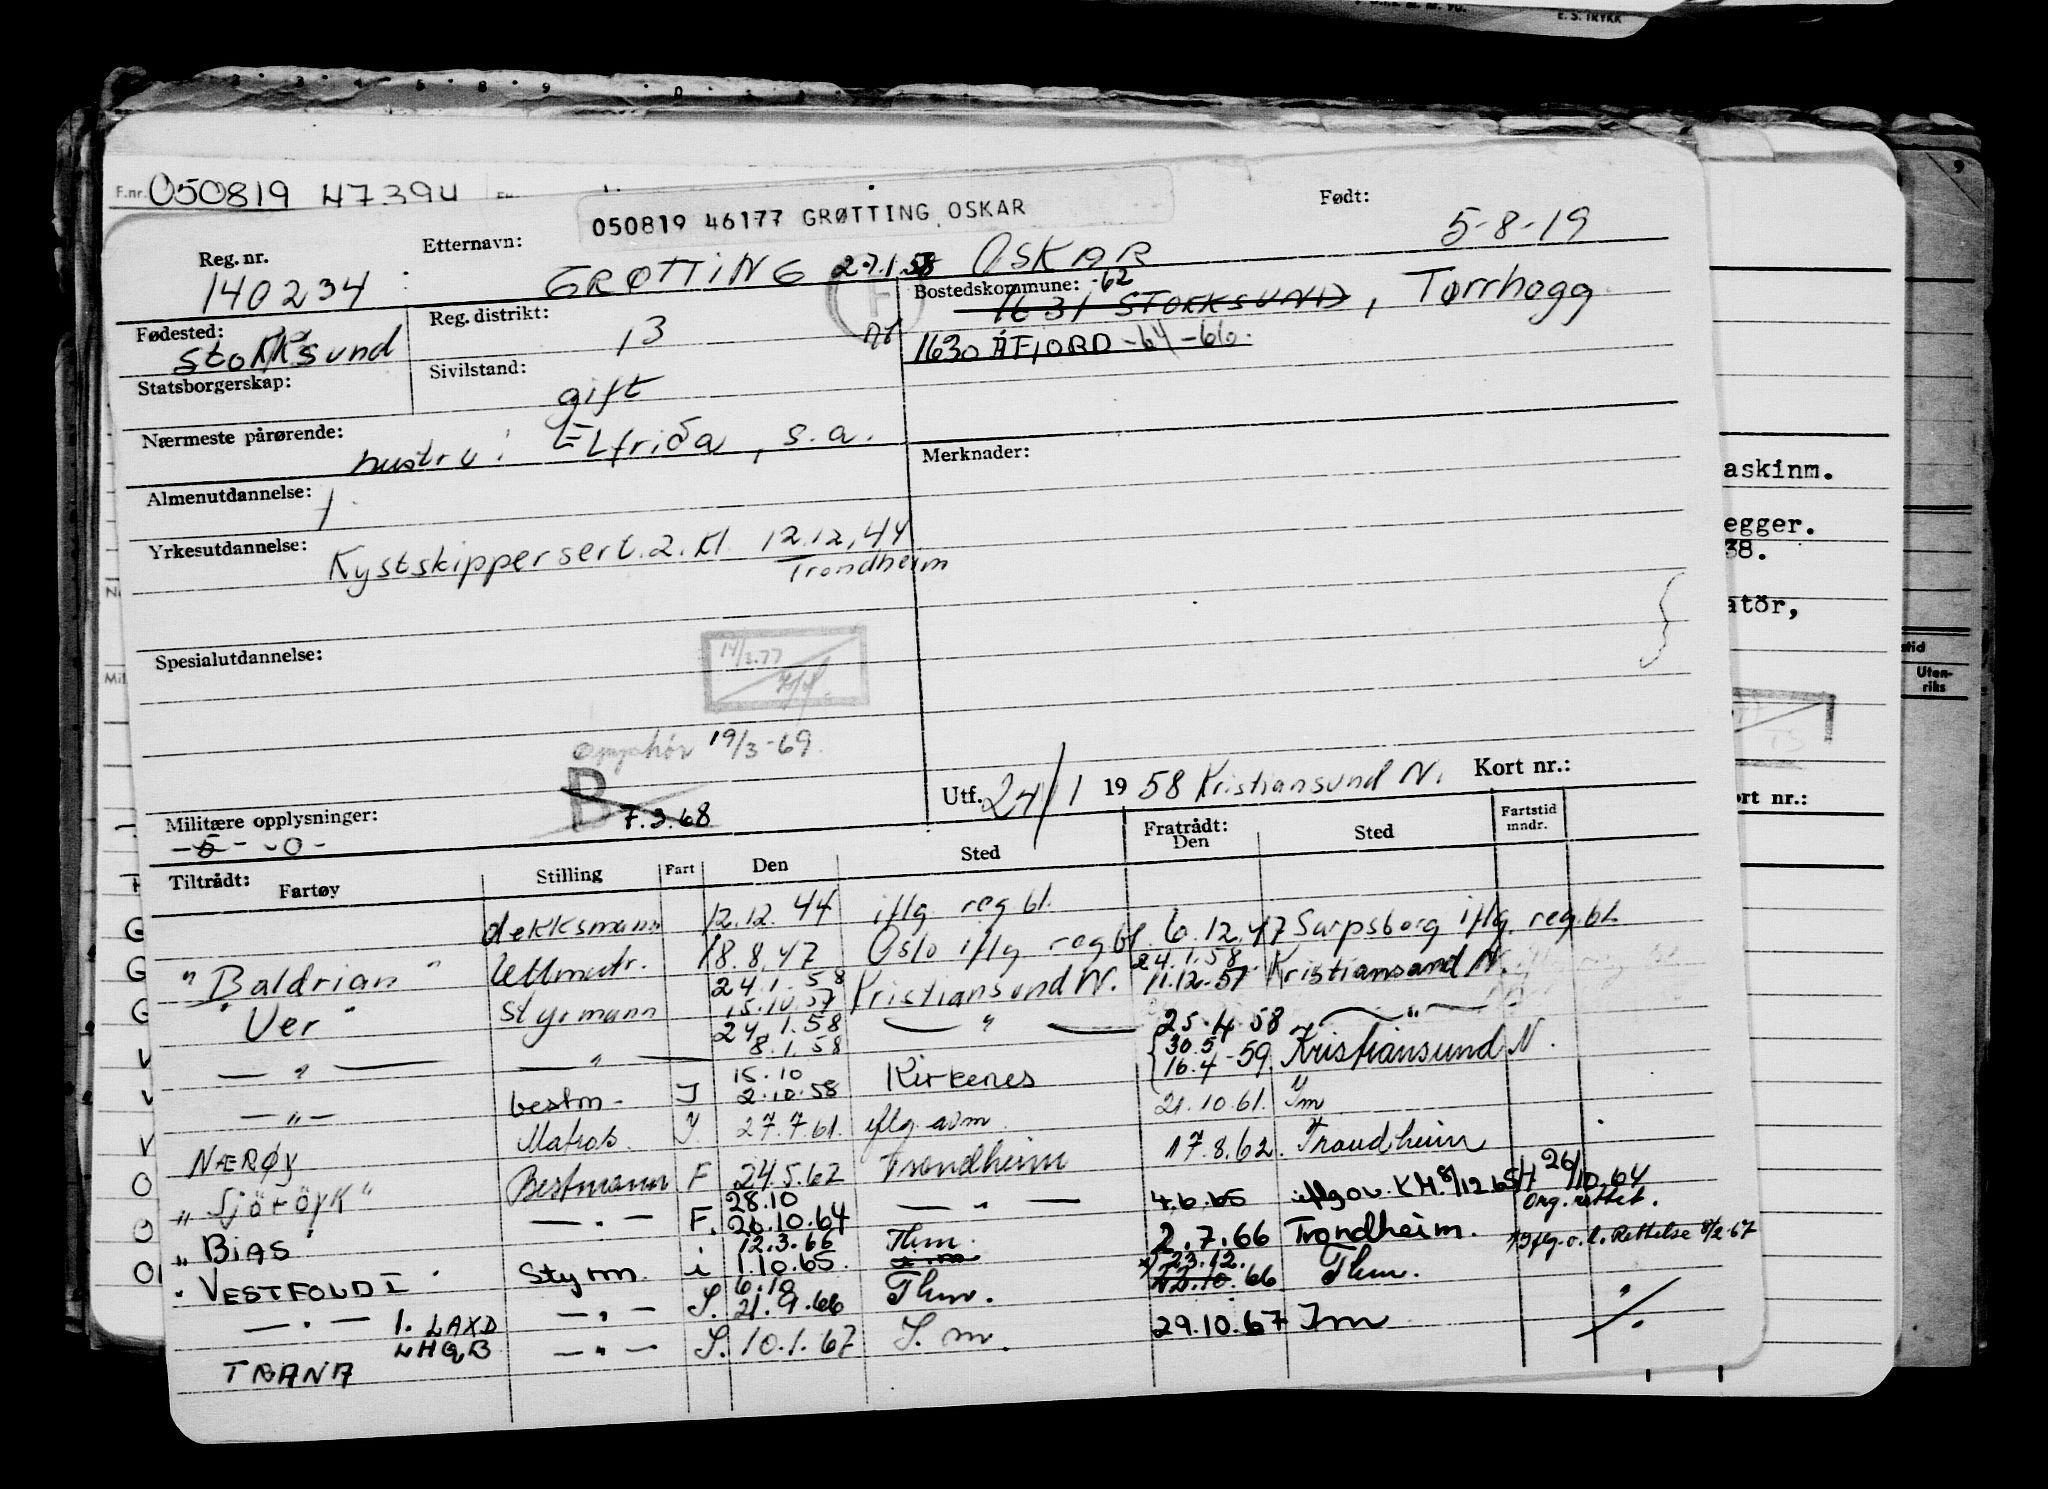 E. S. TRYKK
F.nr. 050819 47394
050819 46177 GRØTTING OSKAR
Født:
5-8-19
Reg. nr.
140234
Etternavn:
GRØTTING 27.1.58 OSKAR
Fødested:
Stokksund
Reg. distrikt:
13
Bostedskommune: -62
1631 STOKKSUND, Tørrhogg
1630 ÅFJORD -64 -66.
Statsborgerskap:
Sivilstand:
gift
Nærmeste pårørende:
hustru: Elfrida, s.a.
Merknader:
Almenutdannelse:
Yrkesutdannelse:
Kystskippersert. 2. kl. 12.12.44
Trondheim
Spesialutdannelse:
Opphør 19/3-69.
B
7.3.68
Militære opplysninger:
-o-
Utf. 24/1 1958 Kristiansund N. Kort nr.:
Tiltrådt:
Fartøy Stilling Fart Den Sted Fratrådt: Den Sted Fartstid mndr.
dekksmann 12.12.44 iflg reg.bl.
"Baldrian" Lettmatr. 18.8.47 Oslo iflg reg.bl. 6.12.47 Sarpsborg iflg. reg.bl.
"Ver" Styrmann 24.1.58 15.10.57 Kristiansund N. 24.1.58 11.12.57 Kristiansand N.
— " — — " — 24.1.58 8.1.58 — " — 25.4.58 — " —
— " — bestm. J 15.10 2.10.58 Kirkenes 30.5 16.4-59 Kristiansund N.
NÆRØY Matros. J. 27.7.61. iflg. avm. 21.10.61. Im
"Sjöröyk" Bestmann F 24.5.62 Trondheim 17.8.62. Trondheim
"BIAS" — " — F. 28.10 26.10.64 — " — 4.6.65 iflg ov. KM. 8/12.65 H 26/10.64 Org. rettet.
"VESTFOLD I" Styrm. i 12.3.66 1.10.65. Thm. 2.7.66 Trondheim.
— " — 1. LAXD — " — S. 6.10 21.9.66 Thm. x) 23.12. 12.10.66 Thm. x) Iflg. o.l. Rettelse 8/2-67
TRANA LHQB — " — S. 10.1.67 I.m. 29.10.67 Im
askinm.
egger.
38.
atör,
Uten-
riks
ort nr.: